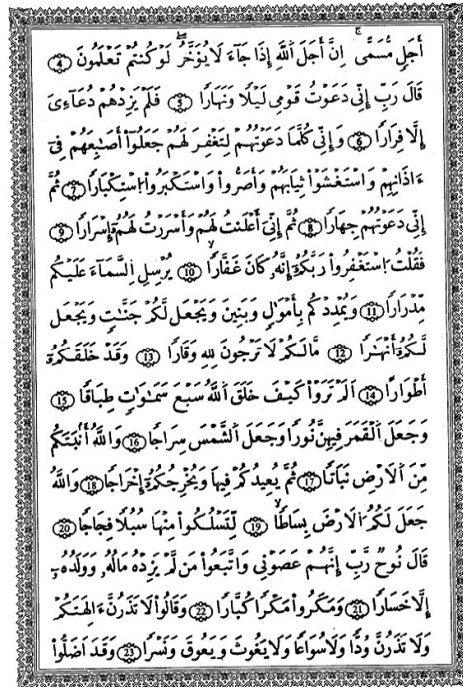 أَجَلٍ مُّسَمًّىۚ إِنَّ أَجَلَ اَ۬للَّهِ إِذَا جَآءَ لَا يُؤَخَّرُۖ لَوْ كُنتُمْ تَعْلَمُونَ 4
قَالَ رَبِّ إِنِّے دَعَوْتُ قَوْمِے لَيْلًا وَنَهَارًا 5 فَلَمْ يَزِدْهُمْ دُعَآءِيَ
إِلَّا فِرَارًا 6 وَإِنِّے كُلَّمَا دَعَوْتُهُمْ لِتَغْفِرَ لَهُمْ جَعَلُوٓا۟ أَصَٰبِعَهُمْ فِےٓ
ءَاذَانِهِمْ وَاسْتَغْشَوْا۟ ثِيَابَهُمْ وَأَصَرُّوا۟ وَاسْتَكْبَرُوا۟ اُ۪سْتِكْبَارًا 7 ثُمَّ
إِنِّے دَعَوْتُهُمْ جِهَارًا 8 ثُمَّ إِنِّيَ أَعْلَنتُ لَهُمْ وَأَسْرَرْتُ لَهُمُۥٓ إِسْرَارًا 9
فَقُلْتُ اُ۪سْتَغْفِرُوا۟ رَبَّكُمُۥٓ إِنَّهُۥ كَانَ غَفَّارًا 10 يُرْسِلِ اِ۬لسَّمَآءَ عَلَيْكُم
مِّدْرَارًا 11 وَيُمْدِدْكُم بِأَمْوَٰلٍ وَبَنِينَ وَيَجْعَل لَّكُمْ جَنَّٰتٍ وَيَجْعَل
لَّكُمُۥٓ أَنْهَٰرًا 12 مَّا لَكُمْ لَا تَرْجُونَ لِلهِ وَقَارًا 13 وَقَدْ خَلَقَكُمُۥٓ
أَطْوَارًا 14 اَلَمْ تَرَوْا۟ كَيْفَ خَلَقَ اَ۬للَّهُ سَبْعَ سَمَٰوَٰتٍ طِبَاقًا 15
وَجَعَلَ اَ۬لْقَمَرَ فِيهِنَّ نُورًا وَجَعَلَ اَ۬لشَّمْسَ سِرَاجًا 16 وَاللَّهُ أَنۢبَتَكُم
مِّنَ اَ۬لَارْضِ نَبَاتًا 17 ثُمَّ يُعِيدُكُمْ فِيهَا وَيُخْرِجُكُمُۥٓ إِخْرَاجًا 18 وَاللَّهُ
جَعَلَ لَكُمُ اُ۬لَارْضَ بِسَاطًا 19 لِّتَسْلُكُوا۟ مِنْهَا سُبُلًا فِجَاجًا 20
قَالَ نُوحٌ رَّبِّ إِنَّهُمْ عَصَوْنِے وَاتَّبَعُوا۟ مَن لَّمْ يَزِدْهُ مَالُهُۥ وَوَلَدُهُۥٓ
إِلَّا خَسَارًا 21 وَمَكَرُوا۟ مَكْرًا كُبَّارًا 22 وَقَالُوا۟ لَا تَذَرُنَّ ءَالِهَتَكُمْ
وَلَا تَذَرُنَّ وُدًّا وَلَا سُوَاعًا وَلَا يَغُوثَ وَيَعُوقَ وَنَسْرًا 23 وَقَدَ اَضَلُّوا۟